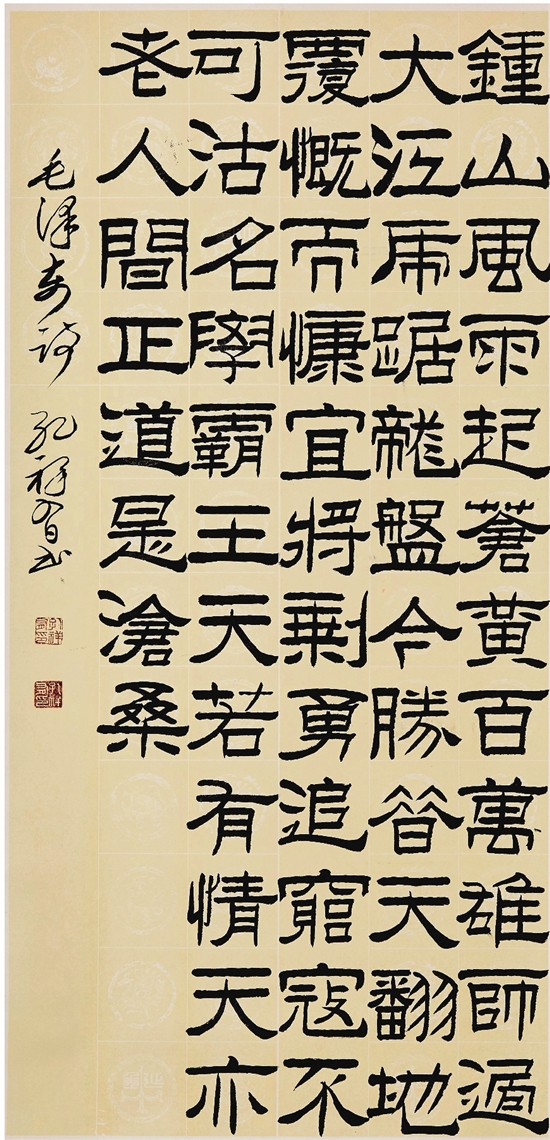 鍾山風雨起蒼黃百萬雄師過
大江虎踞龍盤今勝昔天翻地
覆慨而慷宜將剩勇追窮寇不
可沽名學霸王天若有情天亦
老人間正道是滄桑
毛澤東詩 孔祥書